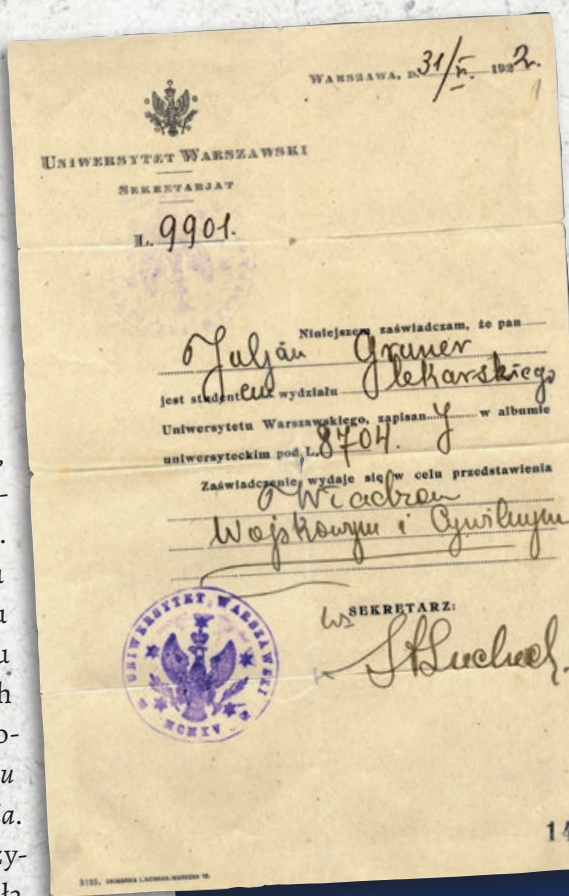 WARSZAWA, D. 31/V. 1922.
UNIWERSYTET WARSZAWSKI
SEKRETARJAT
L. 9901.
Niniejszem zaświadczam, że pan
Juljan Gruner
jest studentem wydziału lekarskiego
Uniwersytetu Warszawskiego, zapisany w albumie
uniwersyteckim pod L. 8704.
Zaświadczenie wydaje się w celu przedstawienia
Władzom
Wojskowym i Cywilnym
SEKRETARZ:
UNIWERSYTET WARSZAWSKI
14
u
u
h
o-
u
a.
zy-
ła